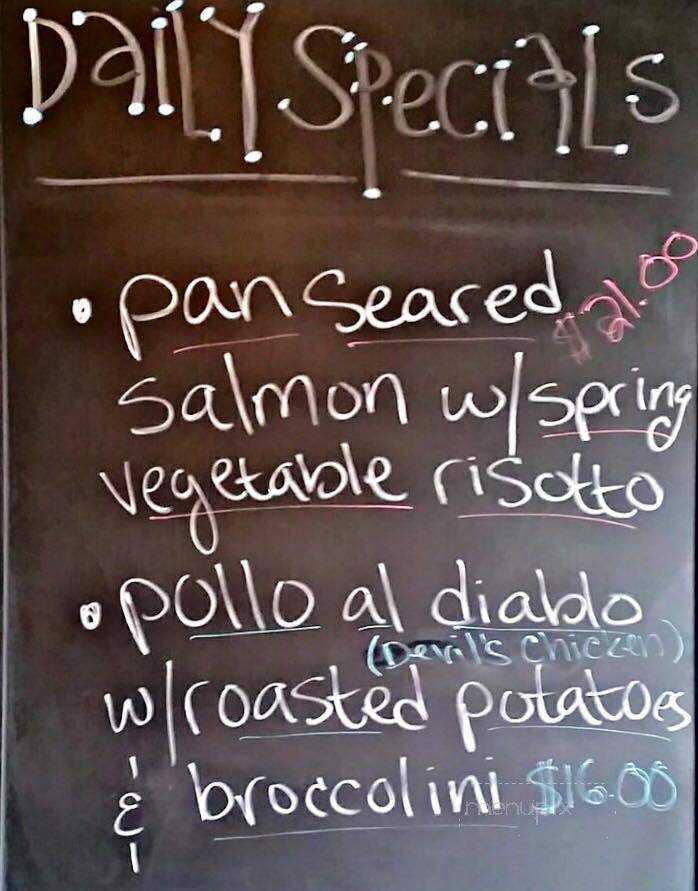 Daily Specials
• pan seared $21.00
salmon w/spring
vegetable risotto
• pollo al diablo
(Devil's Chicken)
w/roasted potatoes
& broccolini $16.00
menupix